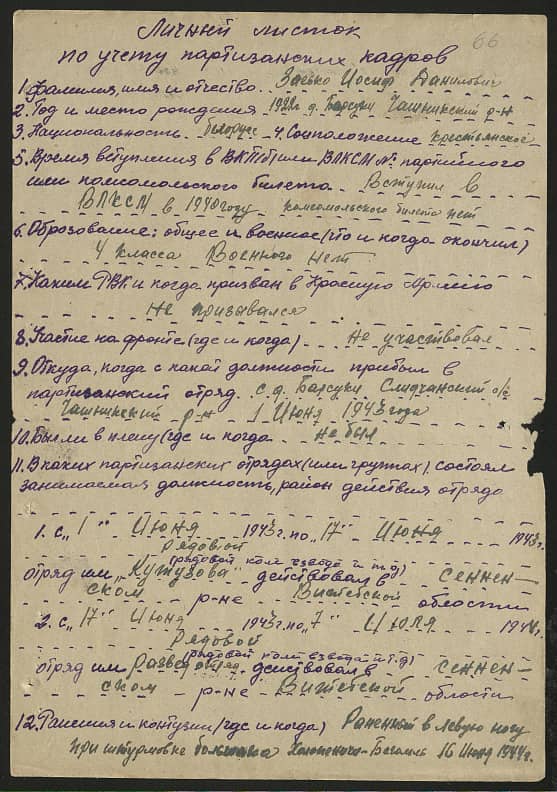 66
Личный листок
по учету партизанских кадров
1. Фамилия, имя и отчество Заенко Иосиф Данилович
2. Год и место рождения д. Барсуки Чашникский р-н
3. Национальность белорусс 4. Соцположение крестьянское
5. Время вступления в ВКП(б) или ВЛКСМ № партийного
или комсомольского билета Вступил в
ВЛКСМ в 1940 году комсомольского билета нет
6. Образование: общее и военное (что и когда окончил)
4 класса Военного нет
7. Каким РВК и когда призван в Красную Армию
Не призывался
8. Участие на фронте (где и когда) Не участвовал
9. Откуда, когда с какой должности прибыл в
партизанский отряд с. д. Барсуки с/с
Чашникский р-н 1 Июня 1943 года
10. Был ли в плену (где и когда не был
11. В каких партизанских отрядах (или группах) состоял
занимаемая должность, район действия отряда
1. с „1" Июня 1943 г. по „17" Июня 1943 г.
Рядовой
(рядовой ком взвода и т.д)
отряд им „Кутузова действовал в сеннен-
ском р-не Витебской области
2. с „17" Июня 1943 г. по „7" Июля 1944 г.
Рядовой
(рядовой ком взвода и т.д)
отряд им действовал в сеннен-
ском р-не Витебской области
12. Ранения и контузии (где и когда) Раненный в левую ногу
при штурмовке Бегомль 16 Июня 1944 г.